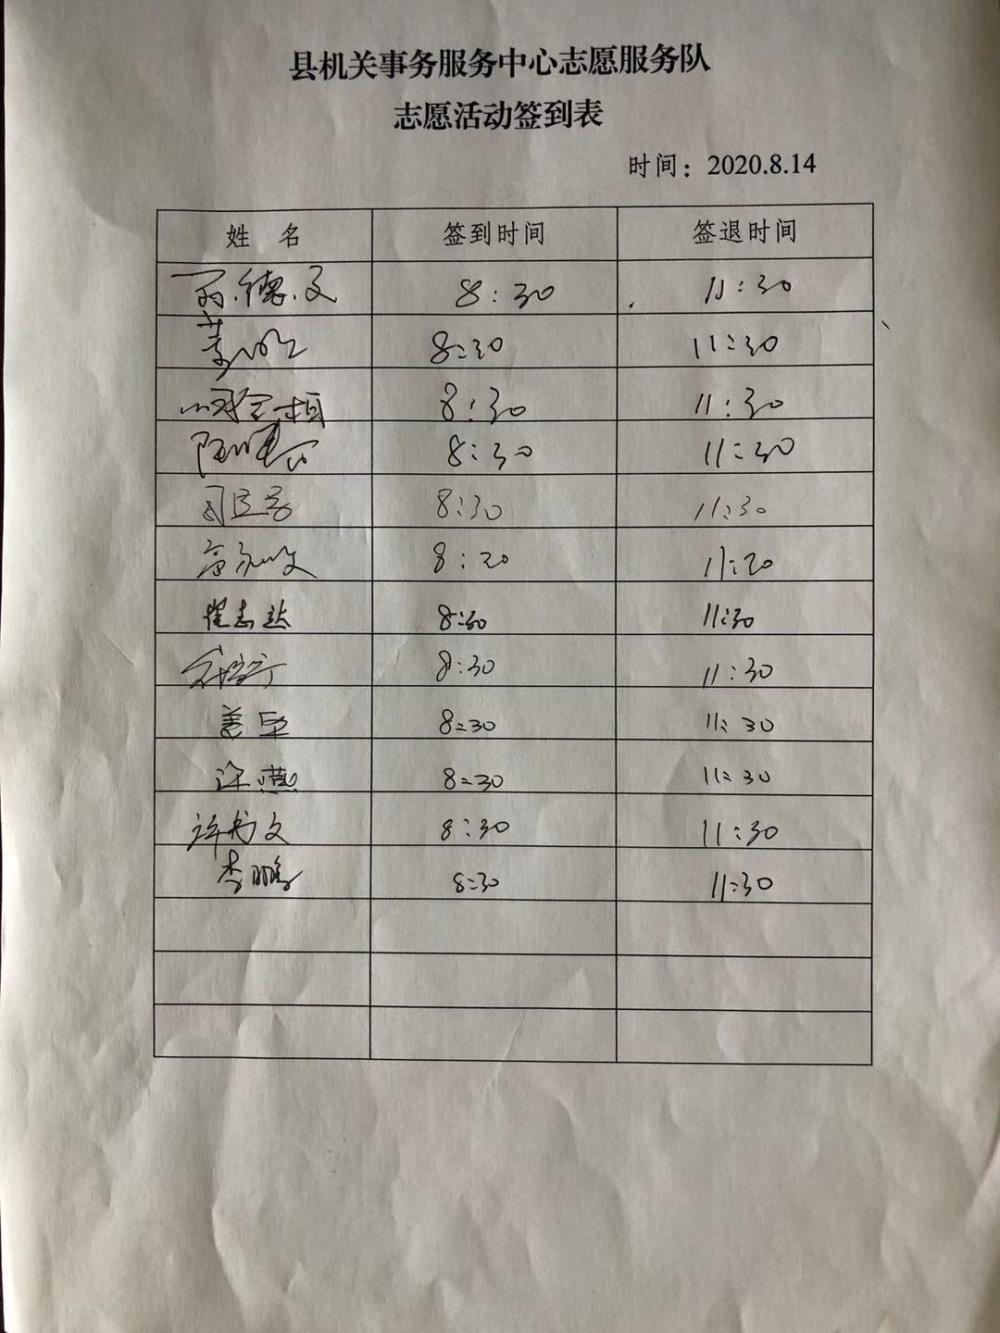 县机关事务服务中心志愿服务队
志愿活动签到表
时间：2020.8.14
姓 名 签到时间 签退时间
德文 8:30 11:30
8:30 11:30
8:30 11:30
8:30 11:30
8:30 11:30
8:30 11:30
崔志达 8:30 11:30
8:30 11:30
姜臣 8:30 11:30
许燕 8:30 11:30
许文 8:30 11:30
李鹏 8:30 11:30